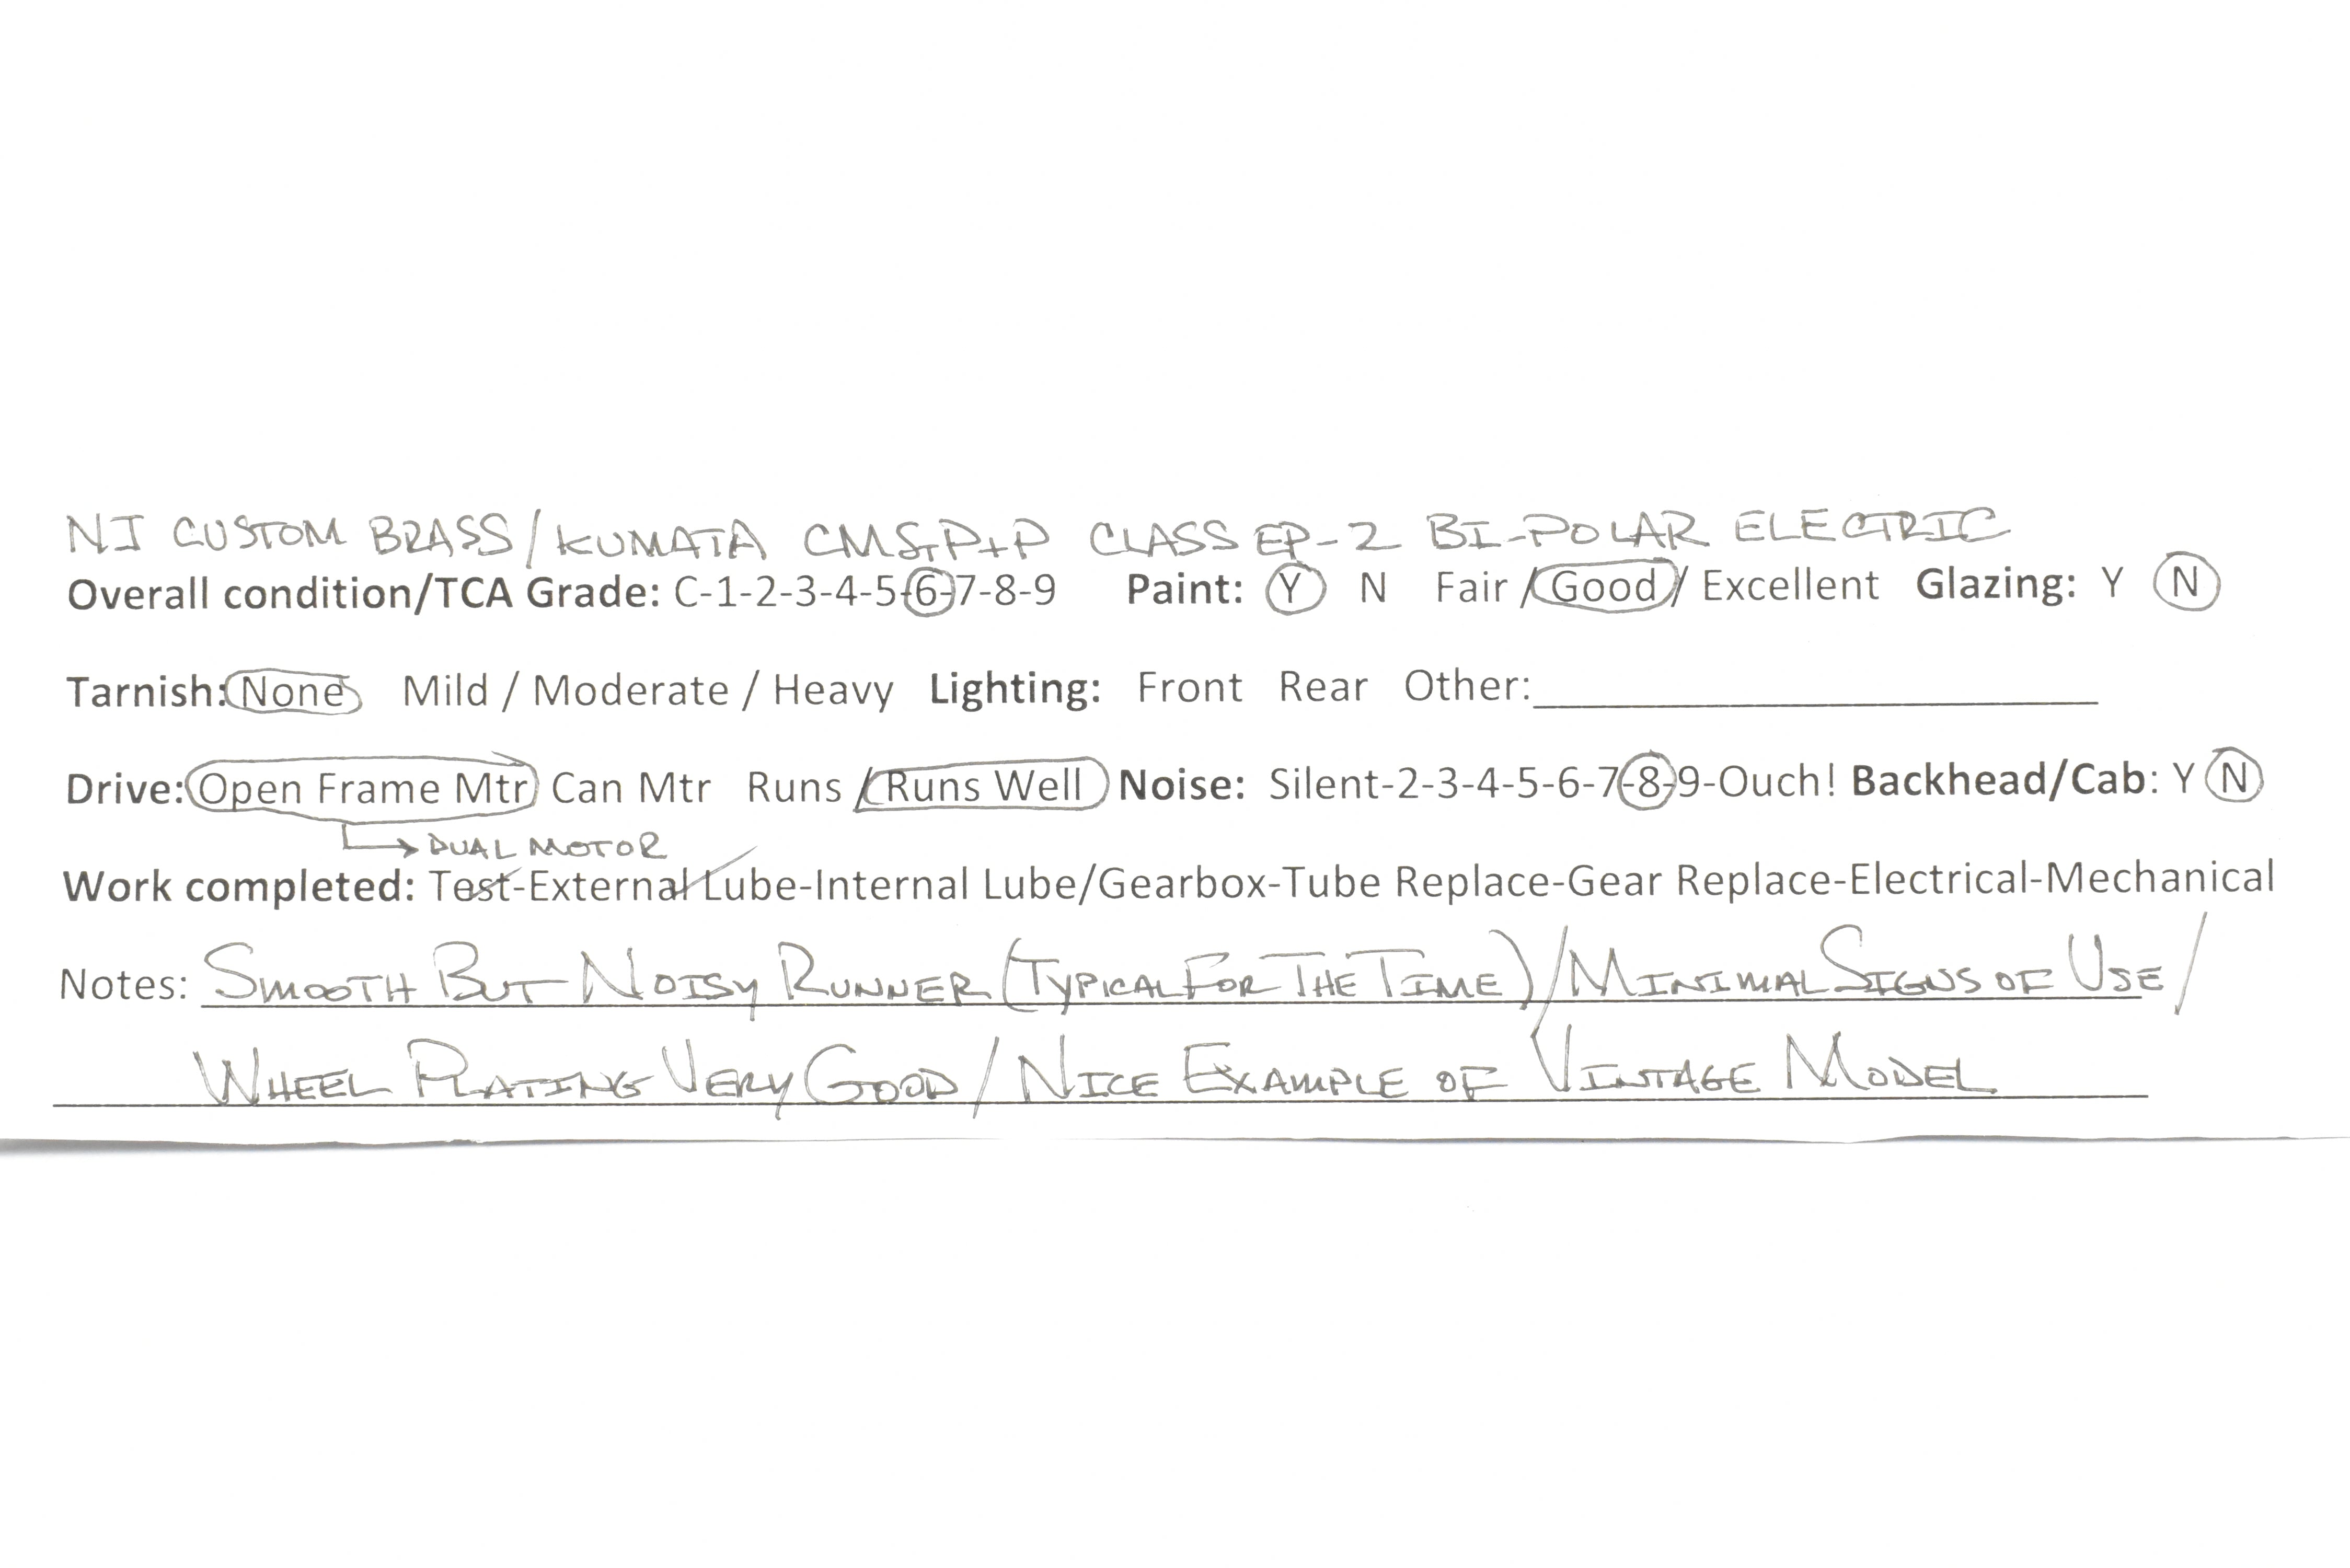 NJ CUSTOM BRASS/KUMATA CMStP+P CLASS EP-2 BI-POLAR ELECTRIC
Overall condition/TCA Grade: C-1-2-3-4-5-6-7-8-9 Paint: Y N Fair / Good / Excellent Glazing: Y N
Tarnish: None Mild / Moderate / Heavy Lighting: Front Rear Other:
Drive: Open Frame Mtr Can Mtr Runs / Runs Well Noise: Silent-2-3-4-5-6-7-8-9-Ouch! Backhead/Cab: Y N
→ DUAL MOTOR
Work completed: Test-External Lube-Internal Lube/Gearbox-Tube Replace-Gear Replace-Electrical-Mechanical
Notes: SMOOTH BUT NOISY RUNNER (TYPICAL FOR THE TIME)/MINIMAL SIGNS OF USE/
WHEEL PLATING VERY GOOD/NICE EXAMPLE OF VINTAGE MODEL